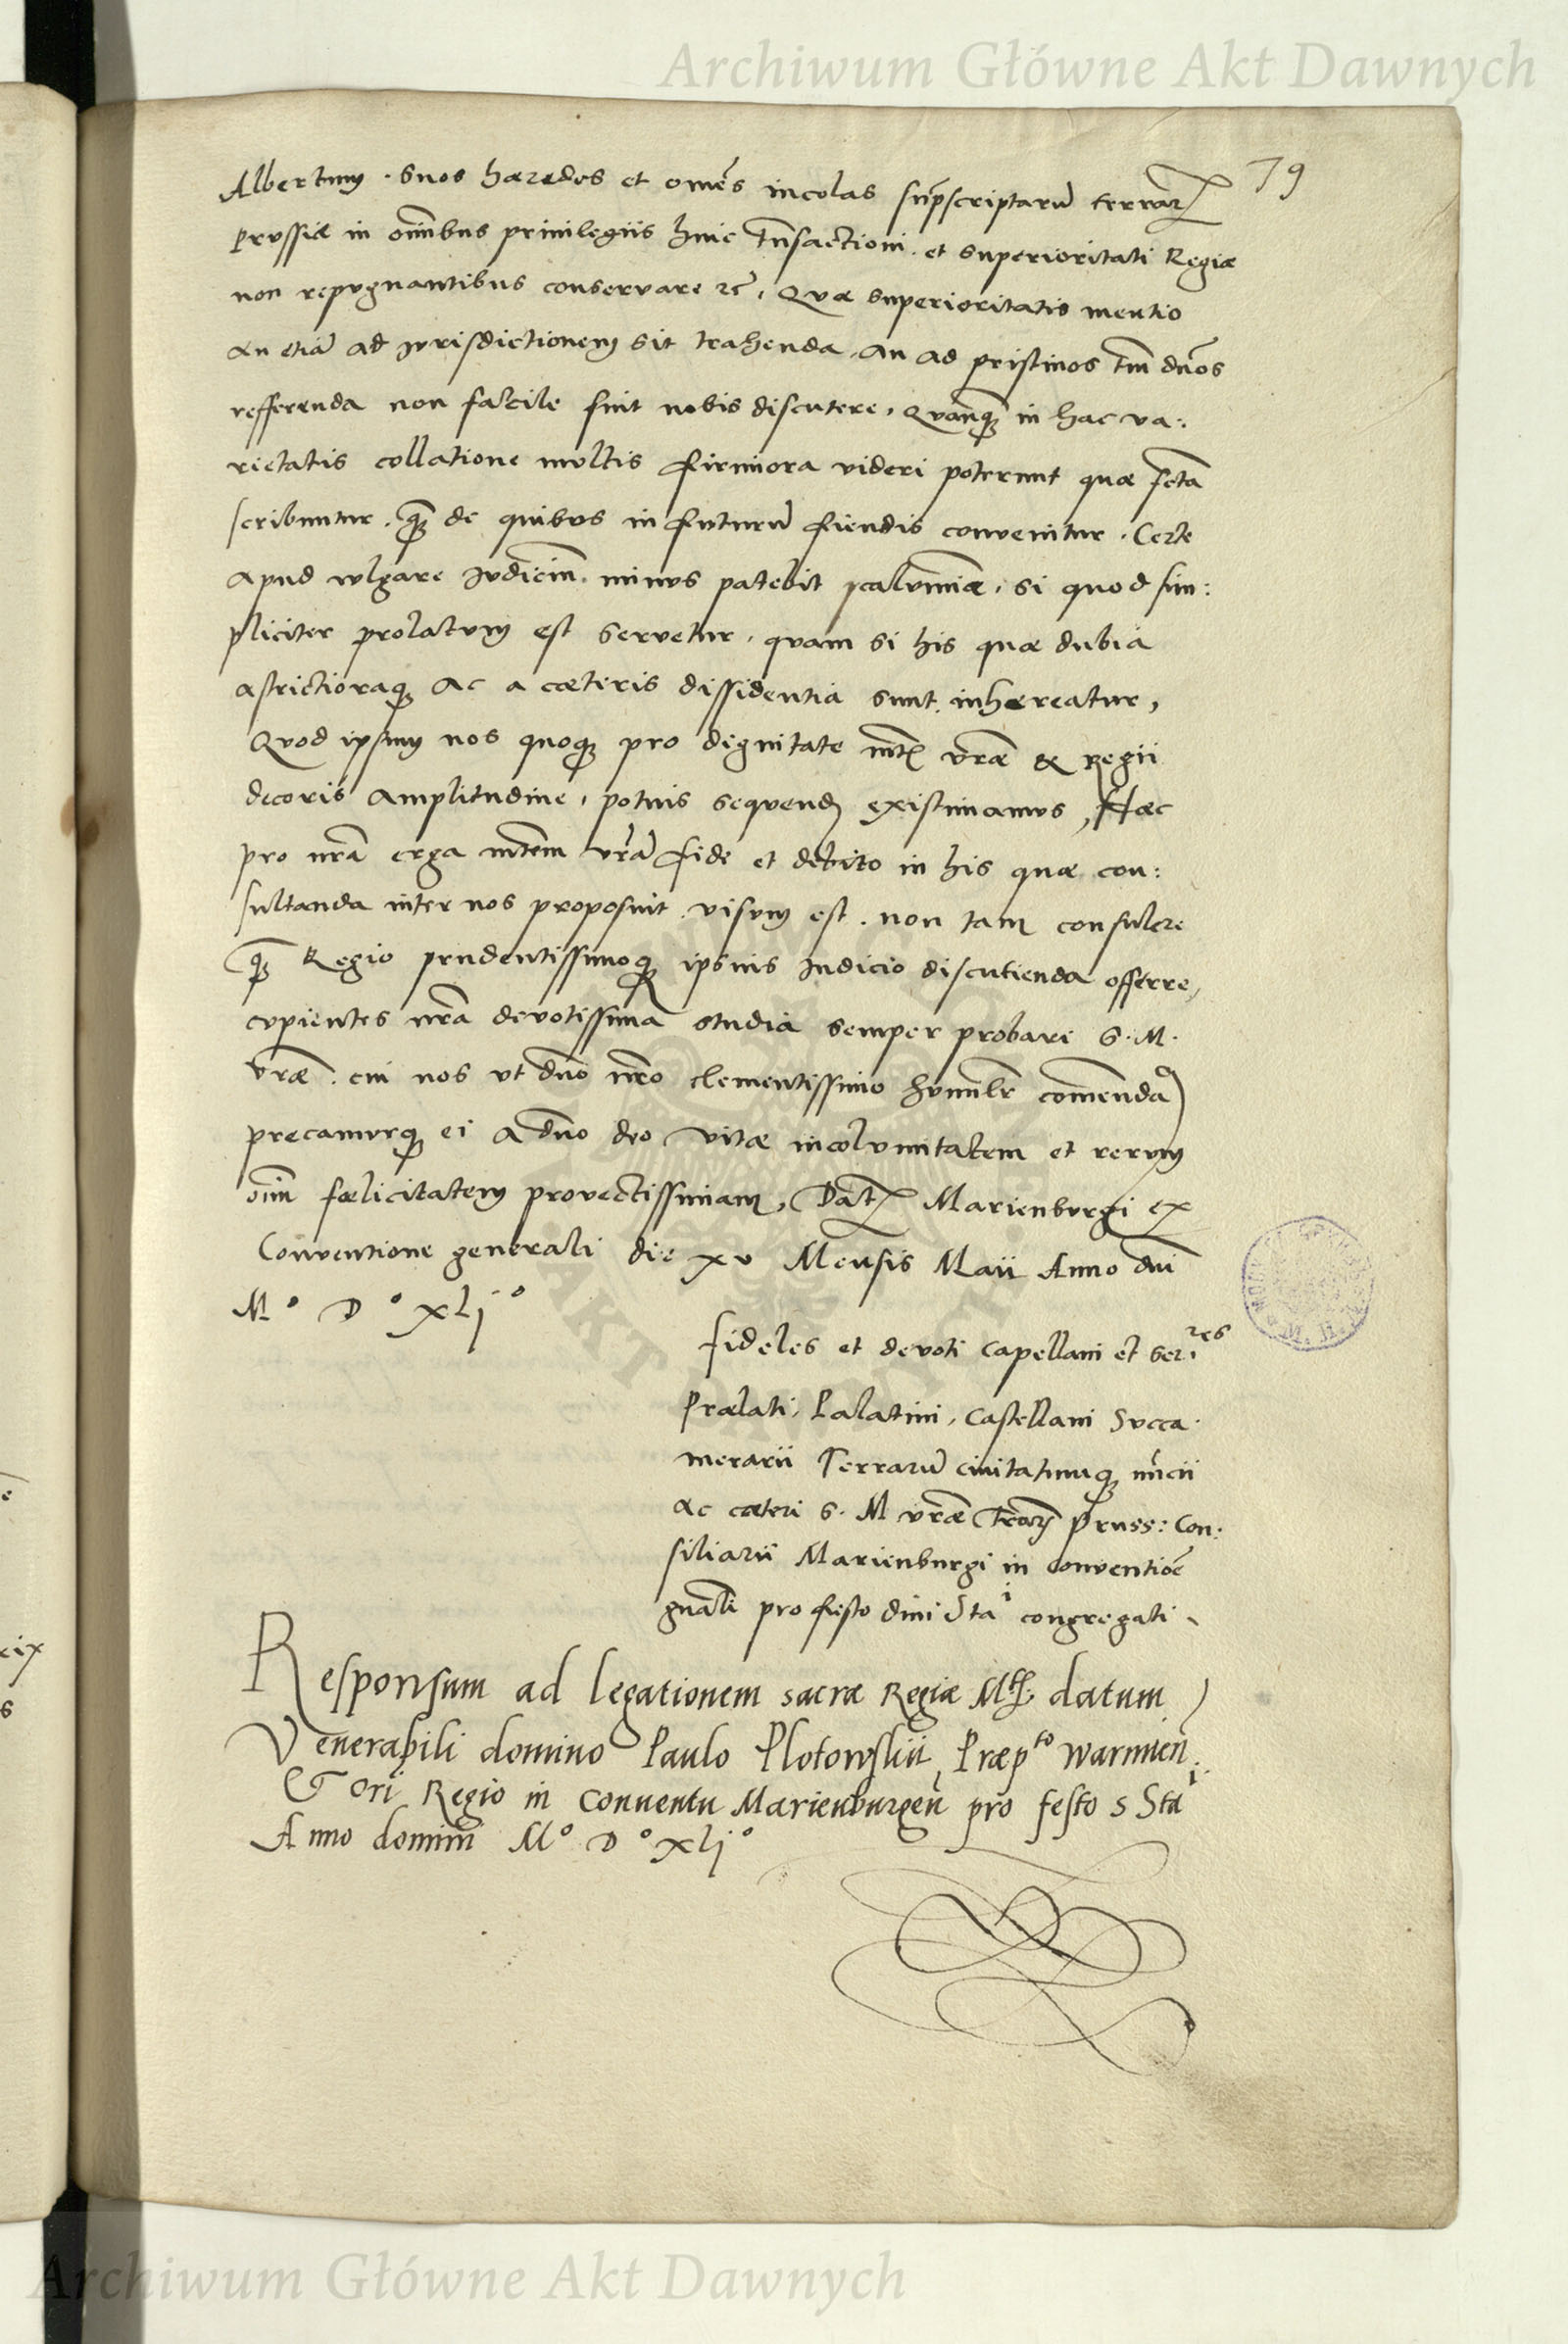 Archiwum Główne Akt Dawnych
79
Albertum . suos hæredes et omẽs incolas sup̃scriptarũ terrarꝝ
Prussiæ in oĩnibus priuilegiis huic tr̃nsactioni . et superioritati Regiæ
non repugnantibus conseruare ꝛc̃, Quæ superioritatis mentio
an etiã ad jurisdictionem sit trahenda . an ad pristinos tm̃ dños
refferenda non facile fuit nobis discutere, Quanqꝫ in hac ua:
rietatis collatione multis firmiora uideri poterunt quæ fcta
scribuntur . qꝫ de quibus in futurũ fiendis conuenitur . Certe
apud uulgare judiciũ . minus patebit calumniæ, si quod sim:
pliciter prolatum est seruetur, quam si his quæ dubia
astrictioraqꝫ ac a cæteris dissidentia sunt inhæreatur,
Quod ipsum nos quoqꝫ pro dignitate mtꝭ vr̃æ & Regii
decoris amplitudine, potius sequendũ existimamus, Hæc
pro nr̃a erga mtem̃ vr̃ã fide et debito in his quæ con:
sultanda inter nos proposuit . visum est . non tam consulere
qꝫ Regio prudentissimoqꝫ ipsius judicio discutienda offerre,
cupientes nr̃a deuotissima studia semper probari S. M.
vr̃æ . cui nos ut dño nr̃o clementissimo humilr̃ comendaṽ
precamurqꝫ ei a dño deo vitæ incolumitatem et rerum
oĩm fœlicitatem prouectissimam, Datꝭ Marienburgi ex
Conuentione generali die xv Mensis Maii Anno dñi
M° D° xlj°
fideles et deuoti Capellani et ser:res
Prælati, Palatini, Castellani Succa:
merarii Terrarũ ciuitatumqꝫ nũcii
ac cæteri S. M vr̃æ Trarꝝ Pruss: Con:
siliarii Marienburgi in conuentiõe
gñali pro festo diui Sta:i congregati
Responsum ad legationem sacræ Regiæ Mtꝭ datum
Venerabili domino Paulo Plotowskii, Præpto Warmieñ.
Et Ori Regio in Conuentu Marienburgeñ pro festo S Stai
Anno domini M° D° xlj°
Archiwum Główne Akt Dawnych